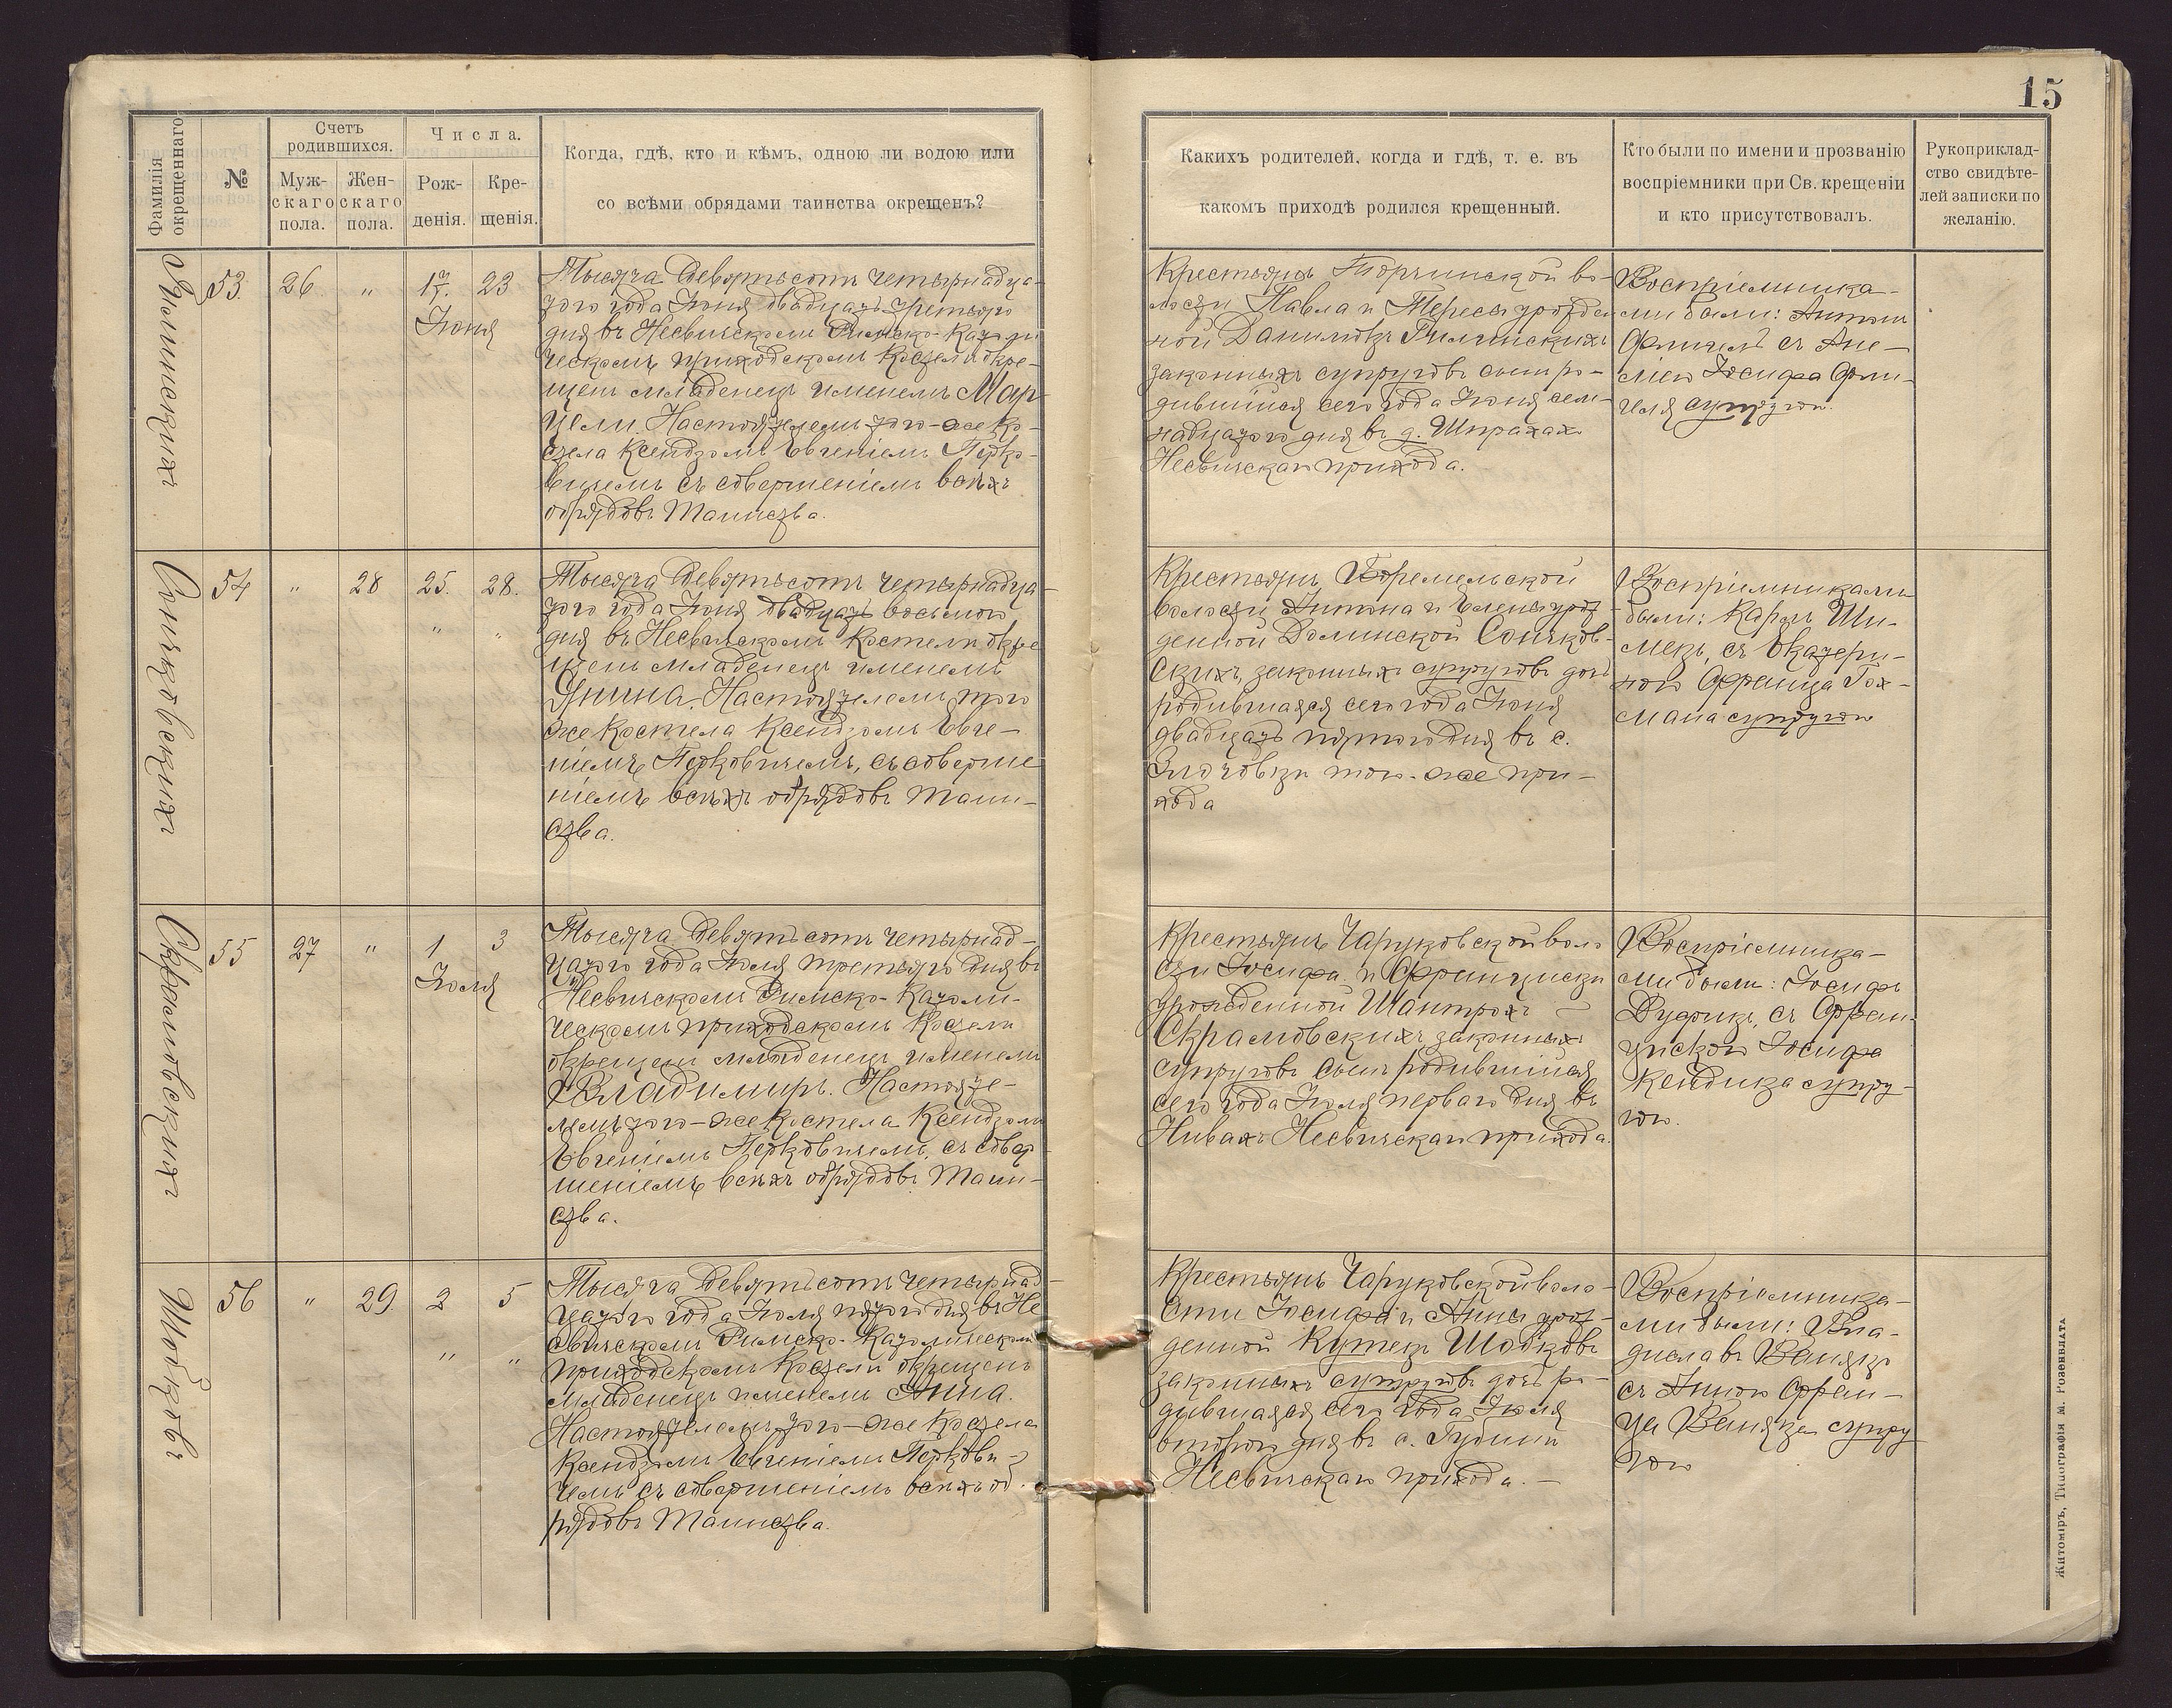 15
Фамилія окрещеннаго
№
Счетъ родившихся.
Мужскаго пола.
Женскаго пола.
Числа.
Рожденія.
Крещенія.
Когда, гдѣ, кто и кѣмъ, одною ли водою или
со всѣми обрядами таинства окрещенъ?
Какихъ родителей, когда и гдѣ, т. е. въ
какомъ приходѣ родился крещенный.
Кто были по имени и прозванію
воспріемники при Св. крещеніи
и кто присутствовалъ.
Рукоприклад-
ство свидѣте-
лей записки по
желанію.
53.
26
"
17.
23
Іюня
Тысяча девятьсотъ четырнадца-
того года Іюня двадцать третьяго
дня въ Несвичскомъ Римско-Католи
ческомъ приходскомъ костелѣ окре-
щенъ младенецъ именемъ Мар-
цели. Настоятелемъ того-же ко-
стела Ксендзомъ Евгеніемъ Перко-
вичемъ съ совершеніемъ всѣхъ
обрядовъ Таинства.
Крестьянъ Торчинской во-
лости Павла и Тересы урожден
ной Данилюкъ
законныхъ супруговъ сынъ ро-
дившійся сего года Іюня сем-
надцатого дня въ д. Шпрахахъ
Несвичскаго прихода.
Воспріемника-
ми были: Антонъ
съ Ане-
лією Іосифа
супругою.
Сончковскихъ
54
"
28
25.
28.
"
"
Тысяча девятьсотъ четырнадца-
того года Іюня двадцать восьмого
дня въ Несвичскомъ Костелѣ окре
щенъ младенецъ именемъ
Янина. Настоятелемъ того
же Костела Ксендзомъ Евге-
ніемъ Перковичемъ, съ соверше
ніемъ всѣхъ обрядовъ Таин-
ства.
Крестьянъ Боремельской
волости Антона и Елены урож-
денной Долинской Сончков-
скихъ, законныхъ супруговъ дочь
родившаяся сего года Іюня
двадцать пятого дня въ с.
того-же при-
хода
Воспріемниками
были: Карлъ Ши-
мекъ, съ Екатери-
ною Франца Гох-
мана супругою
Скрамовскихъ
55
27
"
1
3
Іюля
Тысяча девятьсотъ четырнад-
цатого года Іюля третьяго дня въ
Несвичскомъ Римско-Католи-
ческомъ приходскомъ Костелѣ
окрещенъ младенецъ именемъ
Владимиръ. Настояте-
лемъ того-же Костела Ксендзомъ
Евгеніемъ Перковичемъ, съ совер-
шеніемъ всѣхъ обрядовъ Таин-
ства.
Крестьянъ Чаруковской воло
сти Іосифа и Францишки
урожденной Шантрохъ
Скрамовскихъ законныхъ
супруговъ сынъ родившійся
сего года Іюля перваго дня въ
Нивахъ Несвичскаго прихода.
Воспріемника-
ми были: Іосифъ
Дудрикъ, съ Фран-
цишкою Іосифа
Кендика супру-
гою.
Шобковъ
56
"
29.
2
5
"
"
Тысяча девятьсотъ четырнад-
цатого года Іюля пятого дня въ Не
свичскомъ Римско-Католическомъ
приходскомъ Костелѣ окрещенъ
младенецъ именемъ Анна.
Настоятелемъ того-же Костела
Ксендзомъ Евгеніемъ Перкови-
чемъ съ совершеніемъ всѣхъ об-
рядовъ Таинства.
Крестьянъ Чаруковской воло-
сти Іосифа и Анны урож-
денной Кутекъ Шобковъ
законныхъ супруговъ дочь ро-
дившаяся сего года Іюля
второго дня въ с.
Несвичскаго прихода.-
Воспріемника-
ми были: Вла-
диславъ Венякъ
съ Анною Фран-
ца Веняка супру
гою
Житоміръ, Типографія М. Розенблата